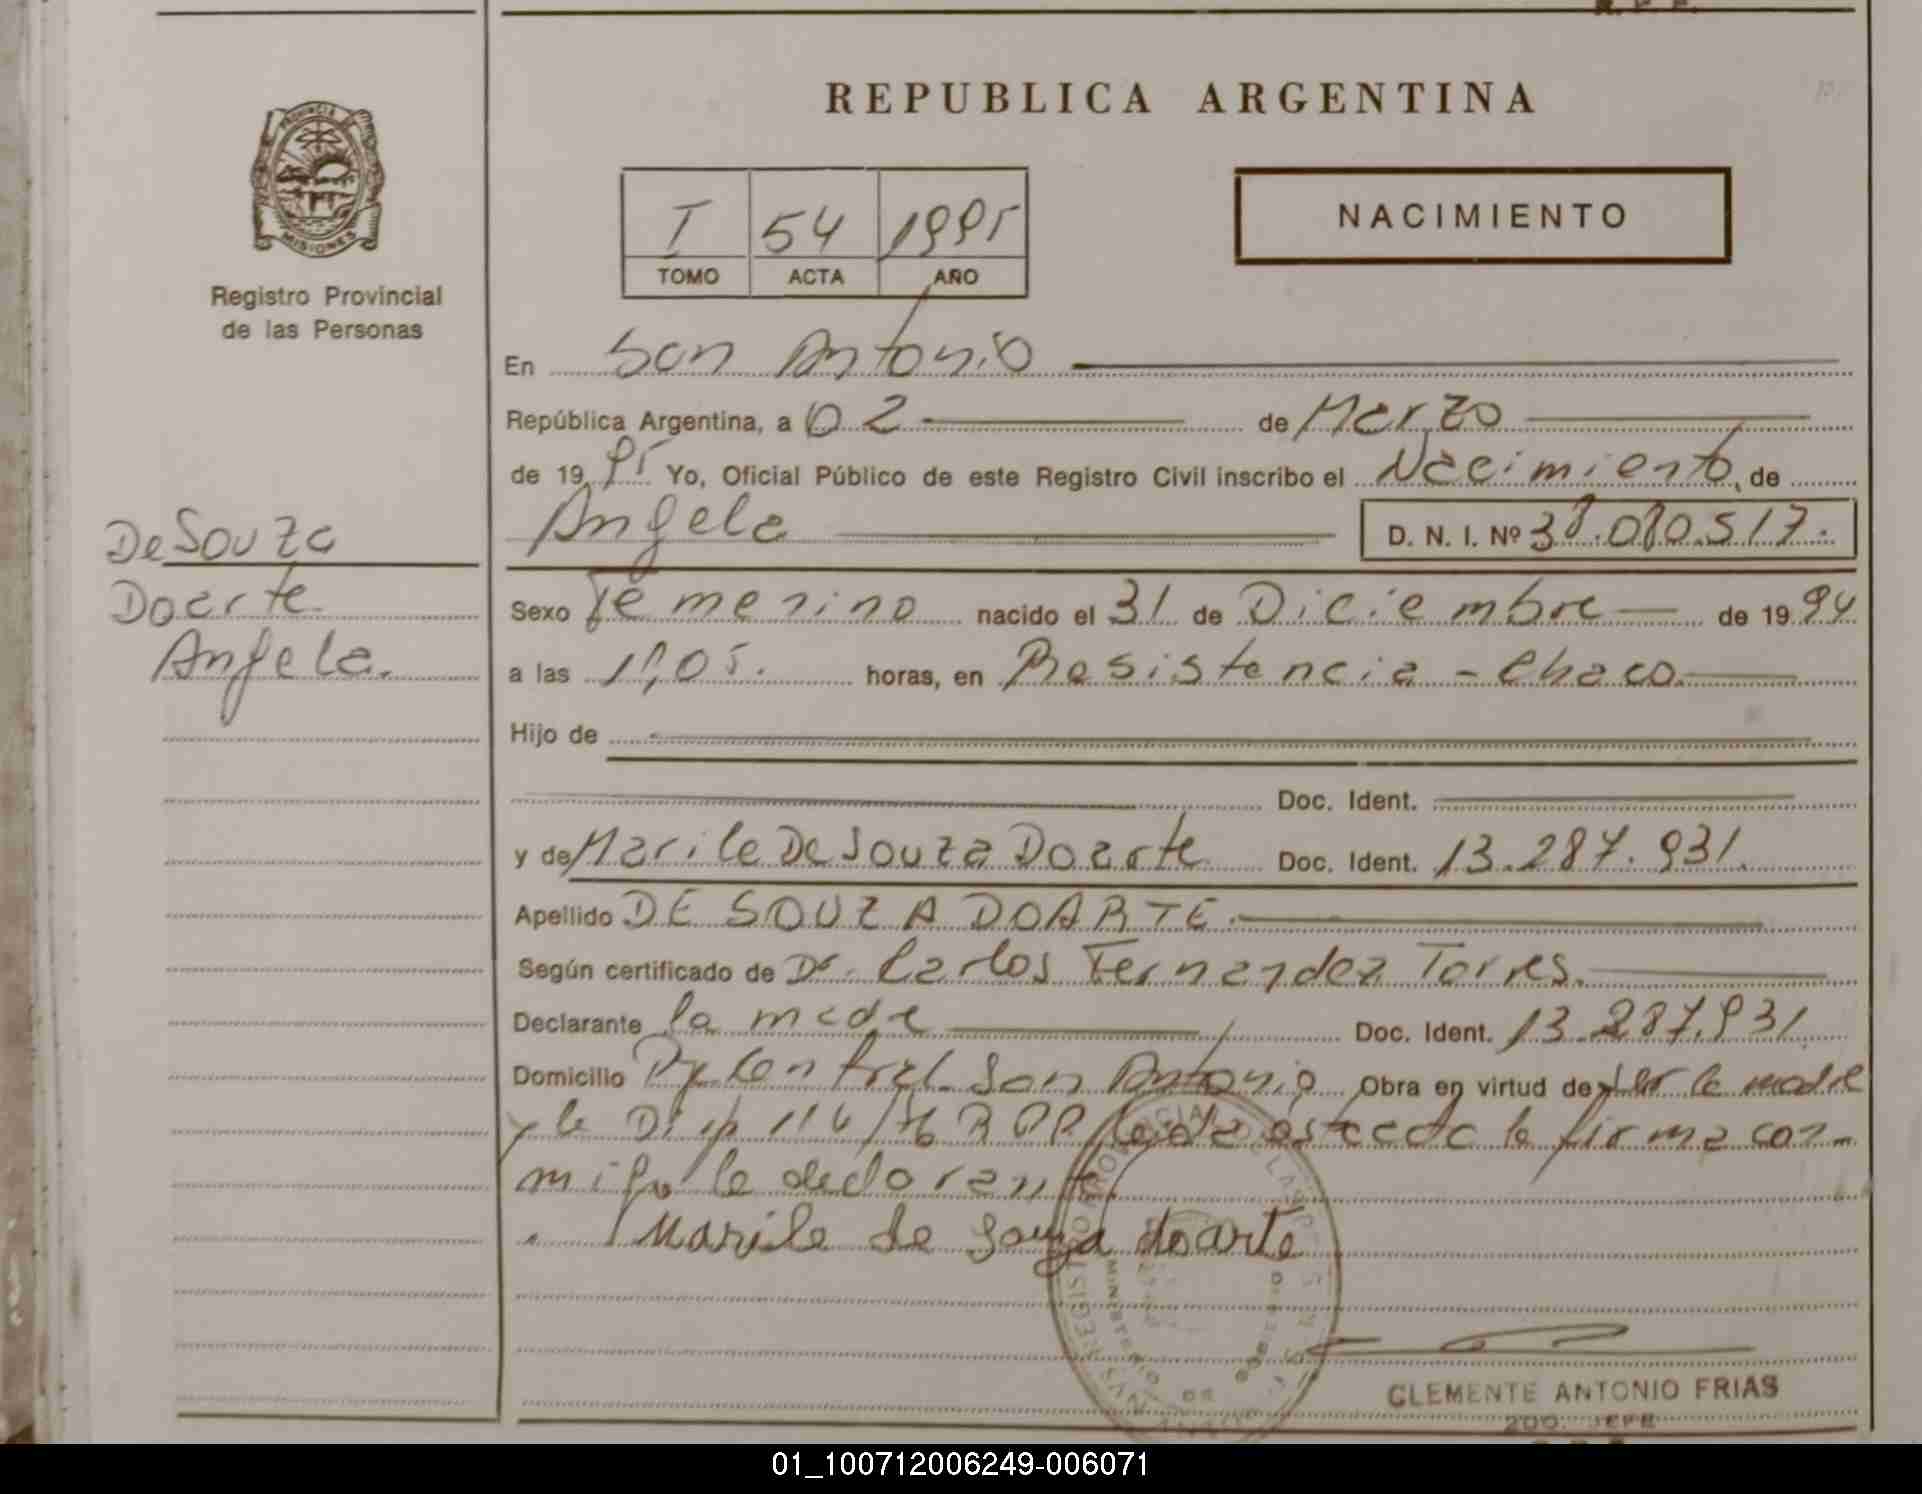 R. P. P.
REPUBLICA ARGENTINA
PROVINCIA DE MISIONES
Registro Provincial
de las Personas
I 54 1995
TOMO ACTA AÑO
NACIMIENTO
En San Antonio
República Argentina, a 02 de Marzo
de 19 95 Yo, Oficial Público de este Registro Civil inscribo el Nacimiento, de
De Souza
Doarte
Angela.
Angela D. N. I. Nº 38.080.517.
Sexo Femenino nacido el 31 de Diciembre de 19 94
a las horas, en Resistencia - Chaco.
Hijo de
Doc. Ident.
y de Marile De Souza Doarte Doc. Ident. 13.287.931.
Apellido DE SOUZA DOARTE.
Según certificado de Dr. Carlos Fernandez Torres.
Declarante la madre Doc. Ident. 13.287.931
Domicilio Central San Antonio Obra en virtud de ser la madre
y la Disp 116/76 R P P Leida esta acta la firma con-
migo la declarante.
Marile de Souza doarte
CLEMENTE ANTONIO FRIAS
2DO. JEFE
01_100712006249-006071